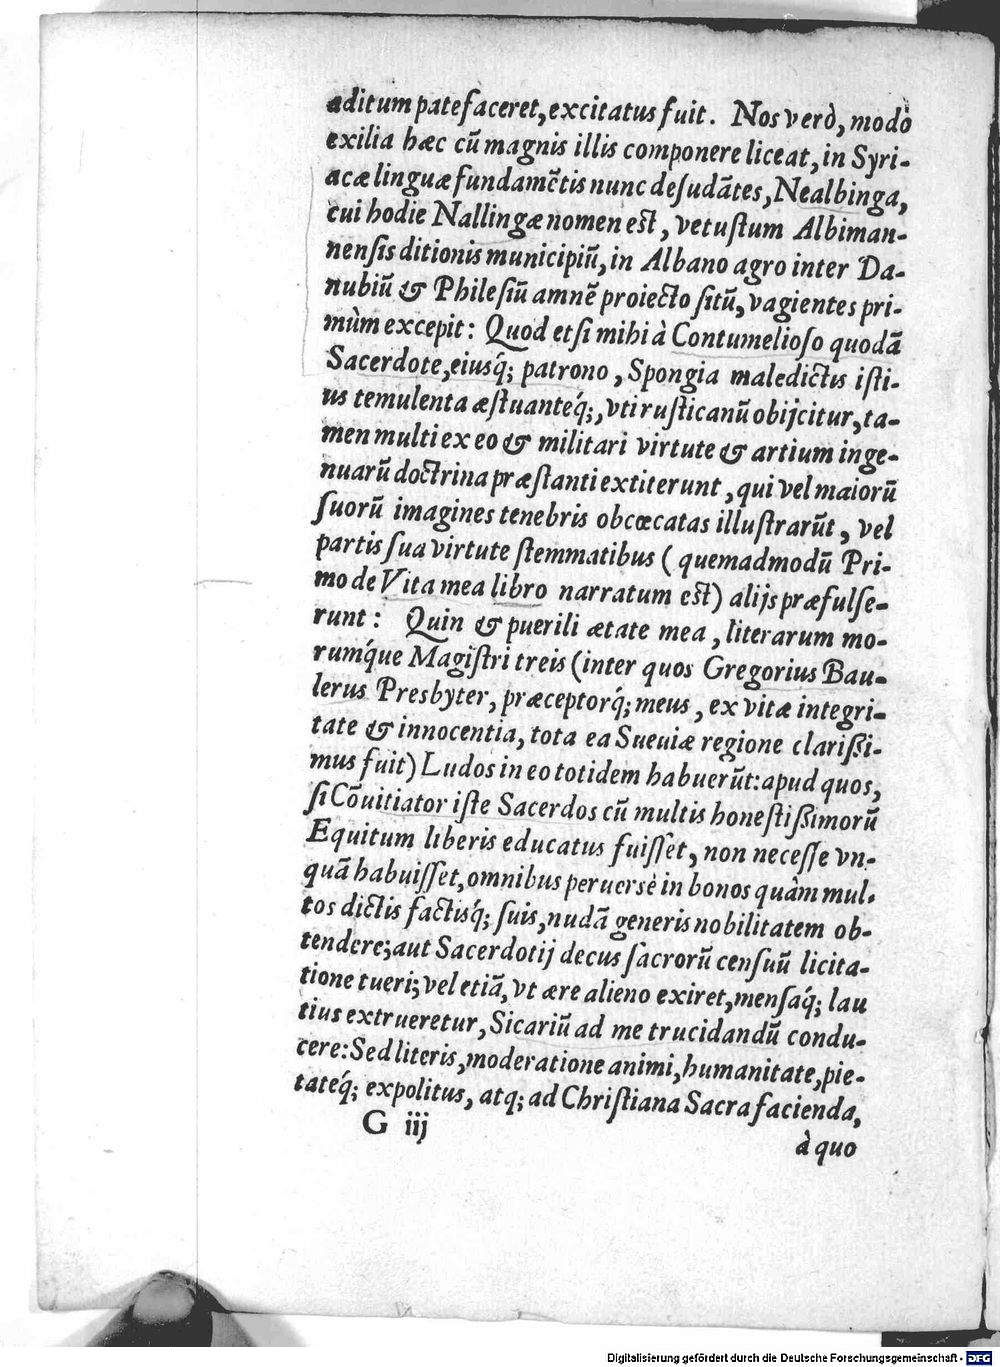 aditum patefaceret, excitatus fuit. Nos verò, modò
exilia hæc cũ magnis illis componere liceat, in Syri-
acæ linguæ fundamẽtis nunc deſudãtes, Nealbinga,
cui hodie Nallingæ nomen est, vetuſtum Albiman-
nenſis ditionis municipiũ, in Albano agro inter Da-
nubiũ & Phileſiũ amnẽ proiecto ſitũ, vagientes pri-
mùm excepit: Quod etſi mihi à Contumelioſo quodã
Sacerdote, eiusq́; patrono, Spongia maledictis iſti-
us temulenta æſtuanteq́;, vti ruſticanũ obijcitur, ta-
men multi ex eo & militari virtute & artium inge-
nuarũ doctrina præſtanti extiterunt, qui vel maiorũ
ſuorũ imagines tenebris obcœcatas illuſtrarũt, vel
partis ſua virtute ſtemmatibus (quemadmodũ Pri-
mo de Vita mea libro narratum est) alijs præfulſe-
runt: Quin & puerili ætate mea, literarum mo-
rumq́ue Magiſtri treis (inter quos Gregorius Bau-
lerus Presbyter, præceptorq́; meus, ex vitæ integri-
tate & innocentia, tota ea Sueuiæ regione clariſſi-
mus fuit) Ludos in eo totidem habuerũt: apud quos,
ſi Cõuitiator iſte Sacerdos cũ multis honeſtiſſimorũ
Equitum liberis educatus fuiſſet, non neceſſe vn-
quã habuiſſet, omnibus peruersè in bonos quàm mul-
tos dictis factisq́; ſuis, nudã generis nobilitatem ob-
tendere; aut Sacerdotij decus ſacrorũ cenſuũ licita-
tione tueri; vel etiã, vt ære alieno exiret, menſaq́; lau
tius extrueretur, Sicariũ ad me trucidandũ condu-
cere: Sed literis, moderatione animi, humanitate, pie-
tateq́; expolitus, atq; ad Chriſtiana Sacra facienda,
G iij
à quo
Digitalisierung gefördert durch die Deutsche Forschungsgemeinschaft - DFG